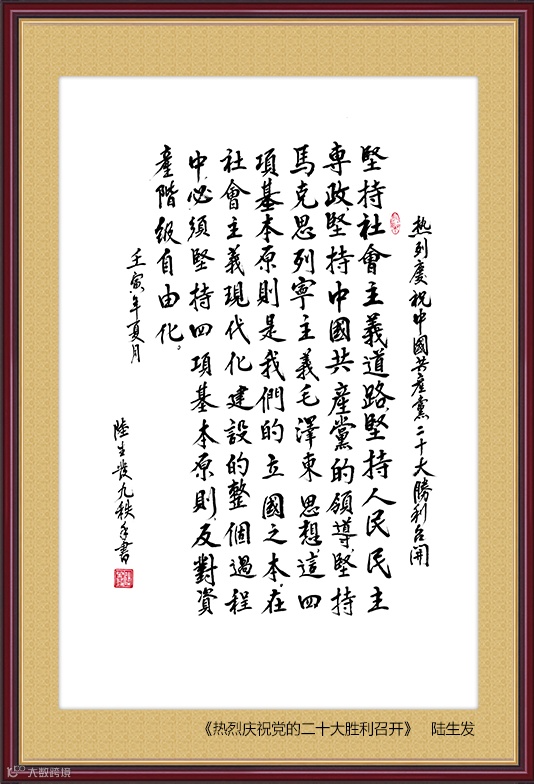 热列慶祝中國共產黨二十大勝利召開
堅持社會主義道路,堅持人民民主
専政,堅持中國共產黨的領導,堅持
馬克思列寧主義毛澤東思想,這四
項基本原則是我們的立國之本,在
社會主義現代化建設的整個過程
中,必須堅持四項基本原則,反對資
產階級自由化。
壬寅年夏月
陸生發九秩手書
《热烈庆祝党的二十大胜利召开》 陆生发
大数跨境